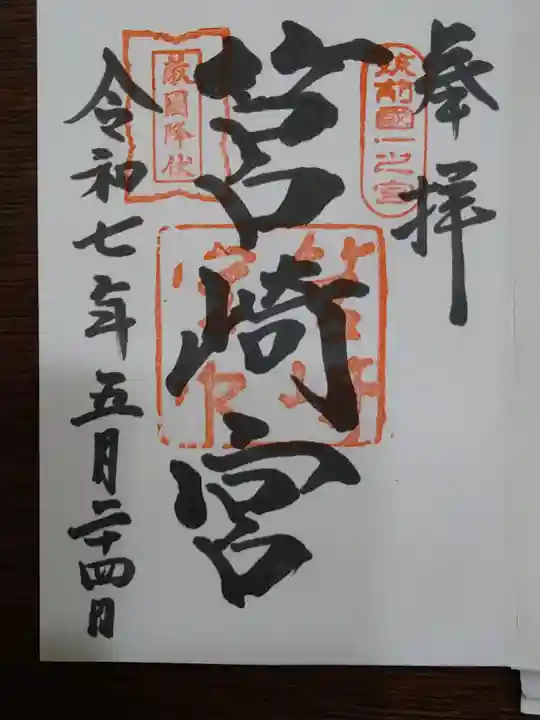 奉拝
筑前國一之宮
筥崎宮
敵國降伏
令和七年五月二十四日